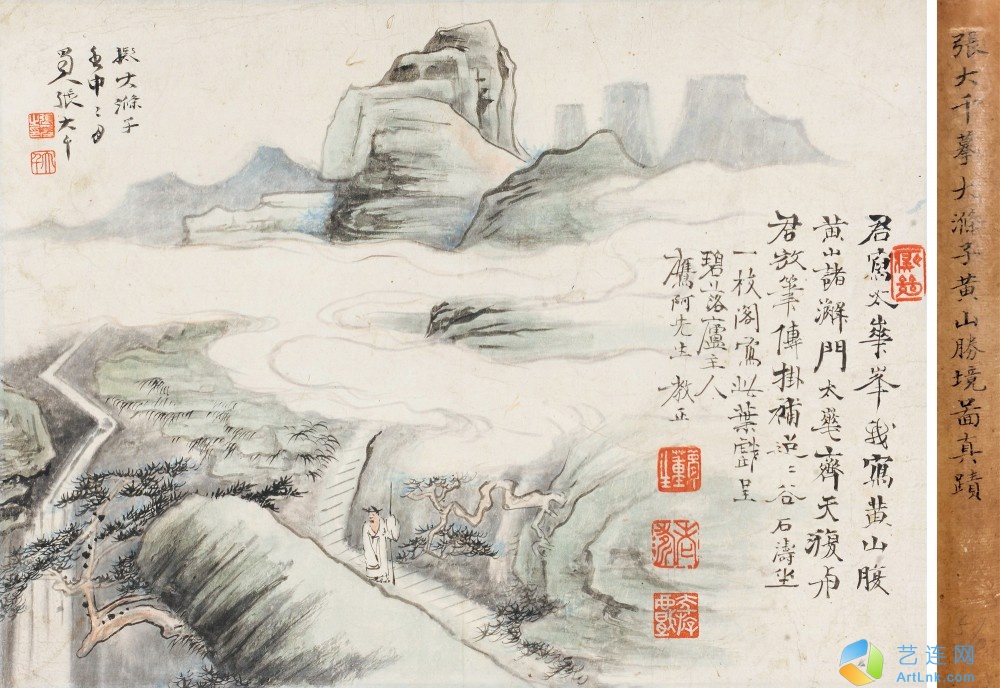 張大千摹大滌子黃山勝境啚真蹟
君寫太華峯我寫黃山腹
黃山諸澥門太華齊天
君放筆傳掛補谷石濤坐
一枝閣寫此葉戲呈
碧落廬主人
鷹阿先生教正
擬大滌子
壬申二月
蜀人張大千
艺连网
ArtLnk.com